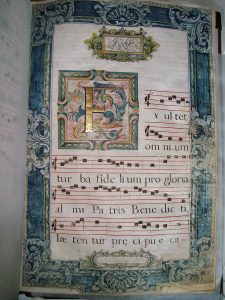 E xul tet
om ni um
tur ba fide lium pro gloria
al mi Pa tris Bene dic ti
læ ten tur præ ci pu e ca-